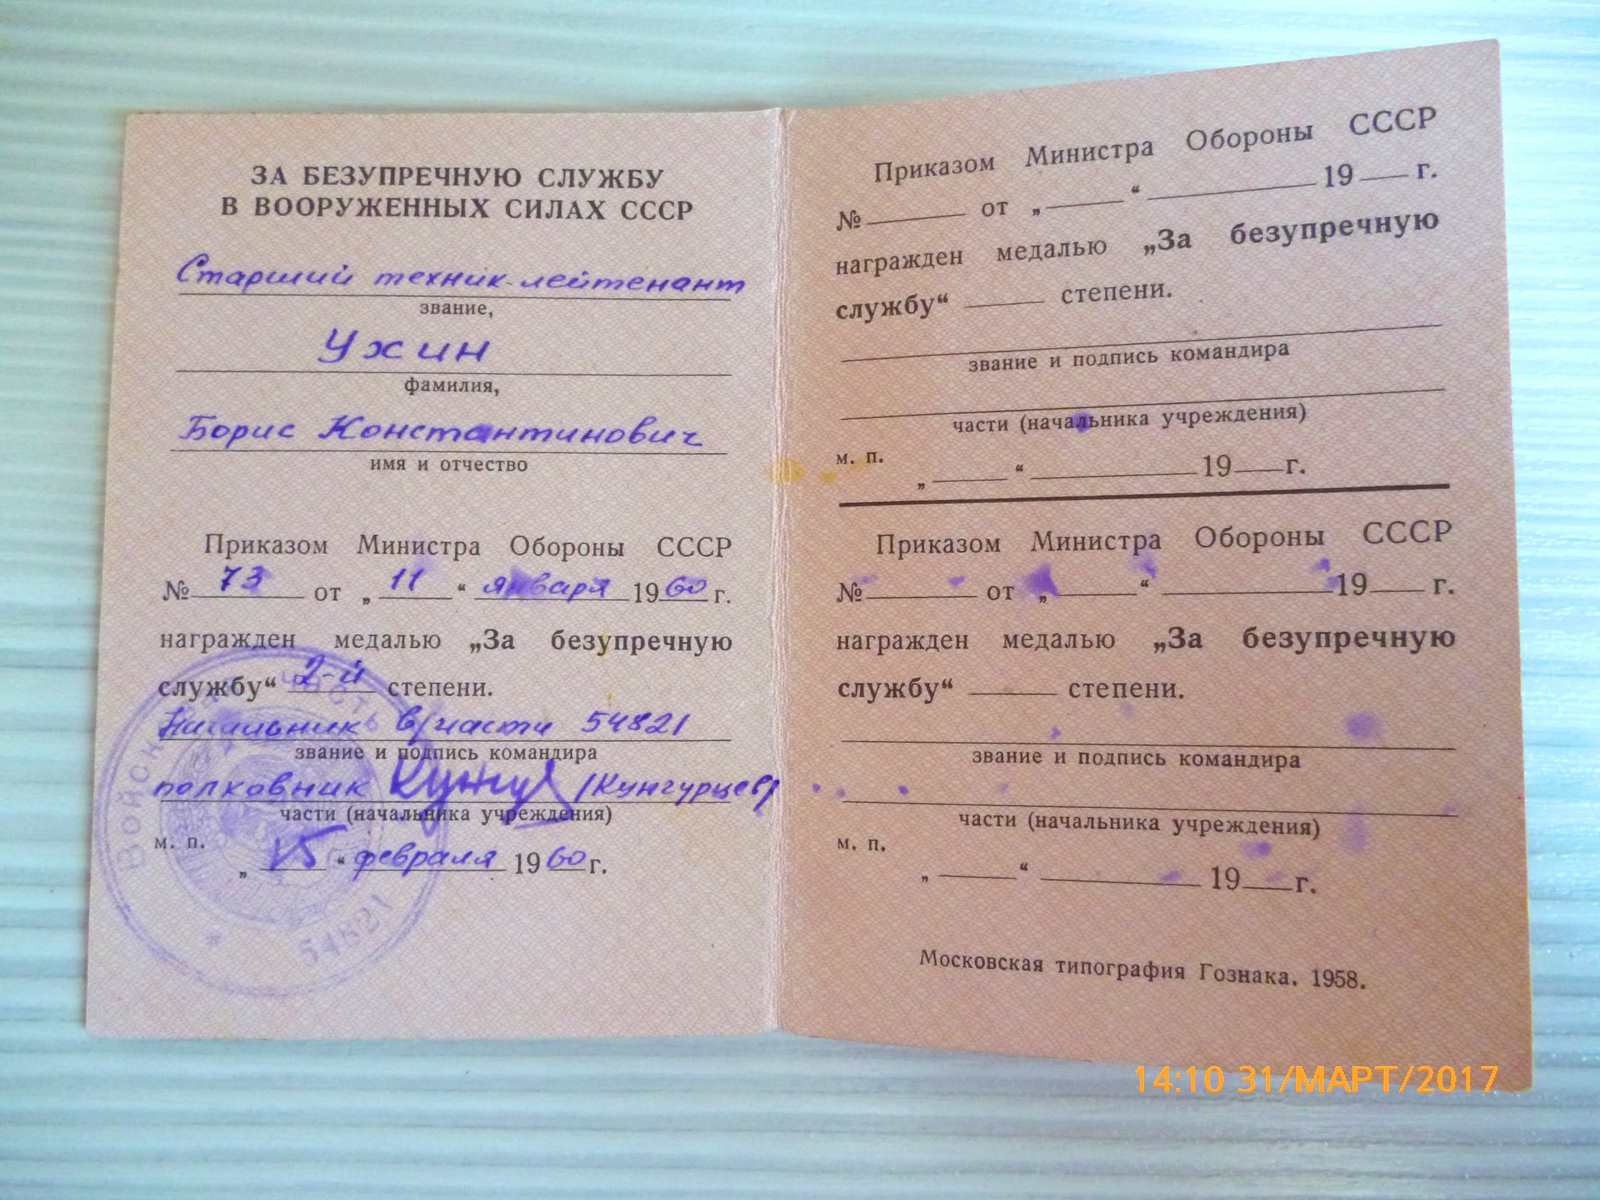 ЗА БЕЗУПРЕЧНУЮ СЛУЖБУ
В ВООРУЖЕННЫХ СИЛАХ СССР
Старший техник-лейтенант
звание,
Ужин
фамилия,
Борис Константинович
имя и отчество
Приказом Министра Обороны СССР
№ 73 от „ 11 “ января 1960 г.
награжден медалью „За безупречную
службу“ 2-й степени.
Начальник в/части 54821
звание и подпись командира
полковник /Кунгурцев/
части (начальника учреждения)
м. п.
„ 15 “ февраля 1960 г.
ВОЙСКОВАЯ ЧАСТЬ
54821
Приказом Министра Обороны СССР
№ от „ “ 19 г.
награжден медалью „За безупречную
службу“ степени.
звание и подпись командира
части (начальника учреждения)
м. п.
„ “ 19 г.
Приказом Министра Обороны СССР
№ от „ “ 19 г.
награжден медалью „За безупречную
службу“ степени.
звание и подпись командира
части (начальника учреждения)
м. п.
„ “ 19 г.
Московская типография Гознака. 1958.
14:10 31/МАРТ/2017